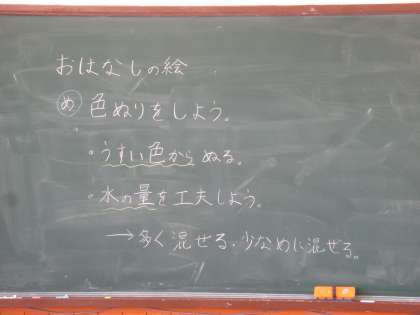 おはなしの絵
め 色ぬりをしよう。
・うすい色からぬる。
・水の量を工夫しよう。
→多く混ぜる・少なめに混ぜる。